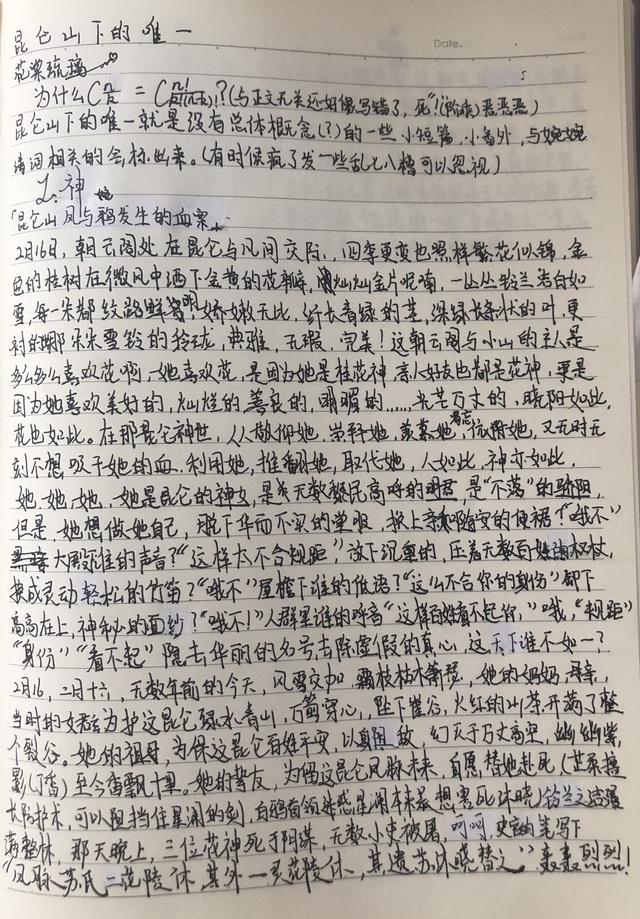 昆仑山下的唯一
Date.
花梁琉璃
为什么C = C ?(与正文无关还如偶写错了,死"!(防) 恶恶恶)
昆仑山下的唯一就是没有总体概念(?)的一些小短篇,小番外,与婉婉
诗词相关的会标出来。(有时候疯了发一些乱七八糟可以忽视)
1.神
「昆仑山风与鸦发生的血案」
2月16日,朝云阁处在昆仑与风间交际,四季更变也照样繁花似锦,金
色的桂树在微风中洒下金黄的花瓣,灿灿金片呢喃,一丛丛铃兰洁白如
雪,每一朵都纹路鲜明,娇嫩无比,纤长青绿的茎,深绿长条状的叶,更
衬的那朵朵雪铃的玲珑,典雅,无瑕,完美!这朝云阁与小山的主人是
多么多么喜欢花啊,她喜欢花,是因为她是桂花神,亲人好友也都是花神,更是
因为她喜欢美好的,灿烂的善良的,明媚的……光芒万丈的,晓阳如此,
花也如此。在那昆仑神世,人人敬仰她,崇拜她,羡慕她,忌惮她,又无时无
刻不想吸干她的血,利用她,推翻她,取代她,人如此,神亦如此,
她,她,她,她是昆仑的神女,是无数黎民高呼的明君,是"不落"的骄阳,
但是,她想做她自己,脱下华而不实的掌服,换上亲和随安的便裙"哦不"
大殿谁的声音?"这样太不合规距",放下沉重的,压着无数百姓的权杖,
换成灵动轻松的竹笛?"哦不"屋檐下谁的低语?"这么不合你的身份"卸下
高高在上,神秘的面纱?"哦不!"人群里谁的呼音"这样百姓看不起你,"哦,"规距"
"身份""看不起"隐去华丽的名号去除虚假的真心,这天下谁不如一?
2月16,二月十六,无数年前的今天,风雪交加,枝枯木,她的妈妈,母亲,
当时的女君为护这昆仑绿水青山,万箭穿心,坠下崖谷,火红的山茶开满了整
个裂谷。她的祖母,为保这昆仑百姓平安,以真阻敌,幻灭于万丈高空,幽幽紫
影(丁香)至今香飘十里。她的挚友,为佑这昆仑风脉未来,自愿替她赴死(芷
长防护术,可以阻挡住星澜的剑,白鸦首领迷惑星澜本来是想害死沐晓)铃兰之结漫
满整林,那天晚上,三位花神死于阴谋,无数小吏被屠,呵呵,史官的笔写下
"风脉苏氏二花陵休,其外一灵花陵休,其遗苏沐晓替之"轰轰烈烈!